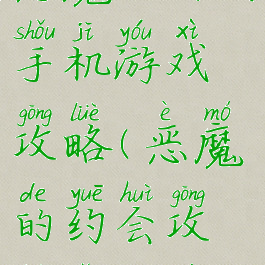 shǒu jī yóu xì
手机游戏
gōng lüè è mó
攻略(恶魔
de yuē huì gōng
的约会攻